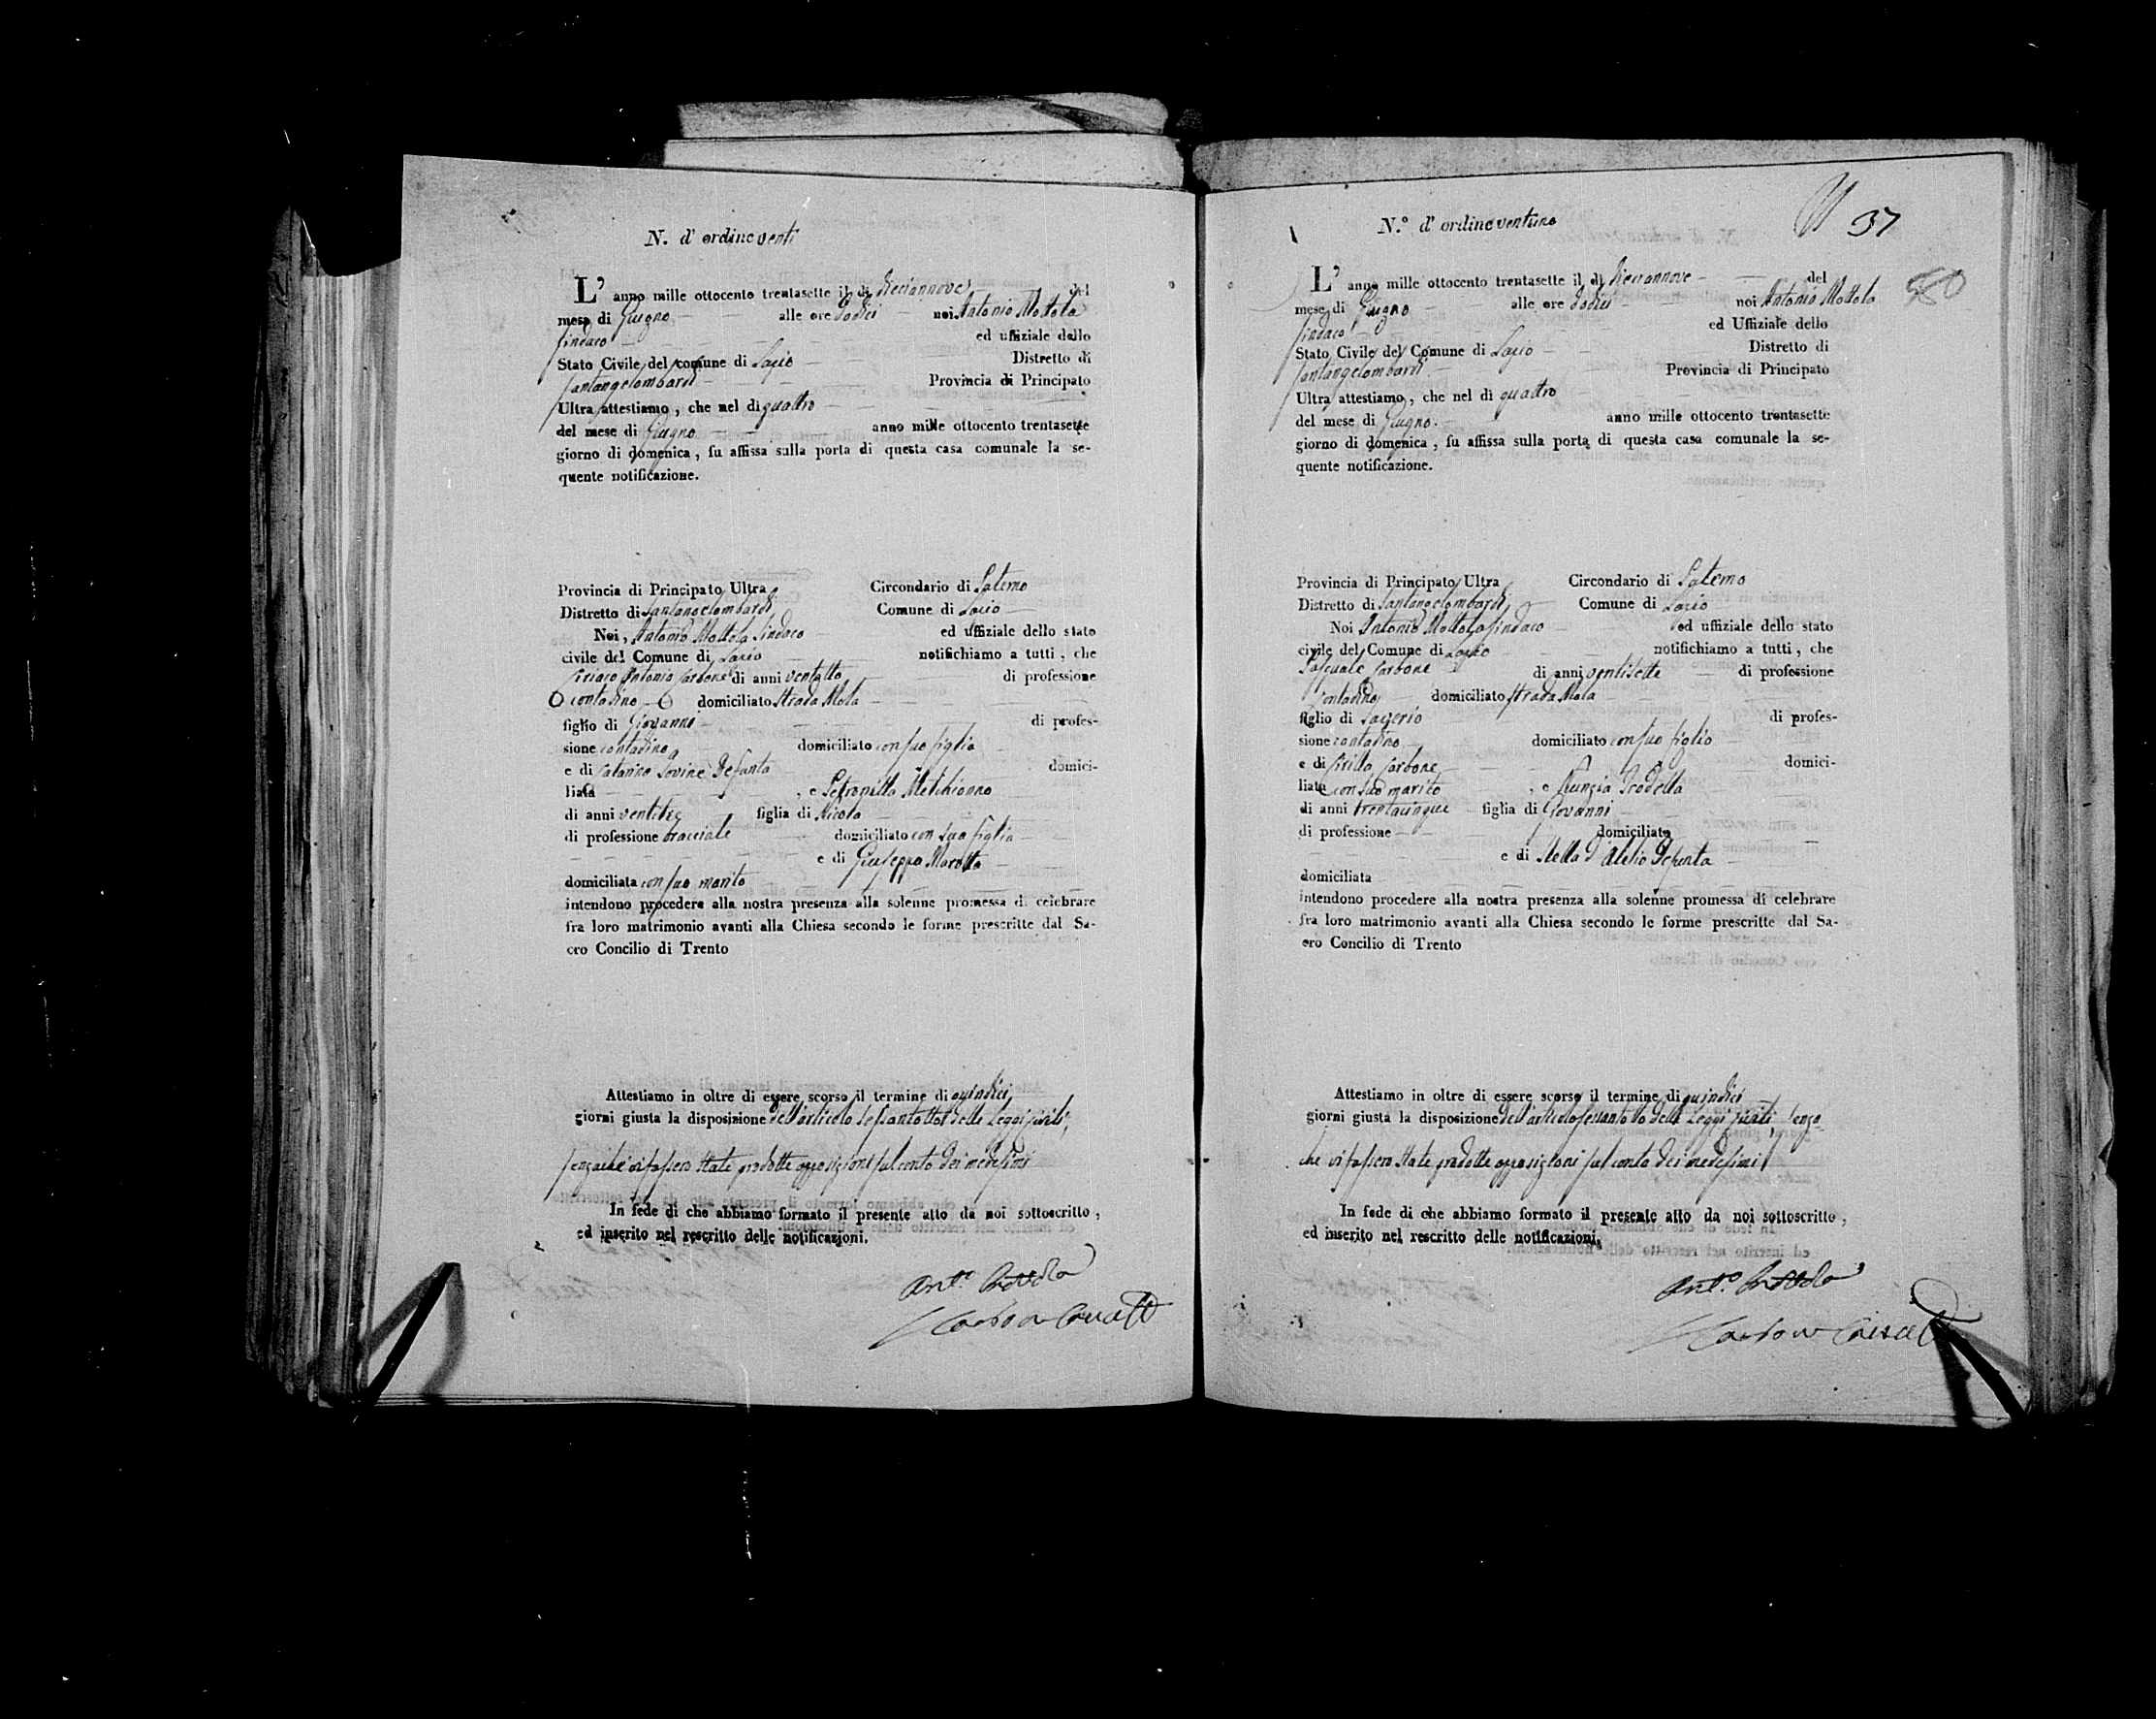 N. d' ordine venti
L' anno mille ottocento trentasette il di diecinnove del
mese di Giugno alle ore dodici noi Antonio Mottola
Sindaco ed uffiziale dello
Stato Civile del comune di Lacio Distretto di
Santangelombardi Provincia di Principato
Ultra attestiamo, che nel dì quattro
del mese di Giugno anno mille ottocento trentasette
giorno di domenica, fu affissa sulla porta di questa casa comunale la se-
quente notificazione.
Provincia di Principato Ultra Circondario di Paterno
Distretto di Santangelombardi Comune di Lacio
Noi, Antonio Mottola Sindaco ed uffiziale dello stato
civile del Comune di Lacio notifichiamo a tutti, che
Ciriaco Antonio Carbone di anni ventotto di professione
contadino domiciliato Strada Mola
figlio di Giovanni di profes-
sione contadino domiciliato con suo figlio
e di Catarina Iovine defunta domici-
liata , e Petronilla Melchionno
di anni ventitre figlia di Nicola
di professione bracciale domiciliato con sua figlia
e di Giuseppa Marotta
domiciliata con suo marito
intendono procedere alla nostra presenza alla solenne promessa di celebrare
fra loro matrimonio avanti alla Chiesa secondo le forme prescritte dal Sa-
cro Concilio di Trento
Attestiamo in oltre di essere scorso il termine di quindici
giorni giusta la disposizione dell'articolo sessantotto delle Leggi civili,
senzache vi fassero state prodotte opposizioni sul conto dei medesimi
In fede di che abbiamo formato il presente atto da noi sottoscritto,
ed inserito nel rescritto delle notificazioni.
Ant.º Mottola
N.º d' ordine ventuno
37
L' anno mille ottocento trentasette il dì diecinnove del
mese di Giugno alle ore dodici noi Antonio Mottola
Sindaco ed Uffiziale dello
Stato Civile del Comune di Lacio Distretto di
Santangelombardi Provincia di Principato
Ultra attestiamo, che nel dì quattro
del mese di Giugno. anno mille ottocento trentasette
giorno di domenica, fu affissa sulla porta di questa casa comunale la se-
quente notificazione.
Provincia di Principato Ultra Circondario di Paterno
Distretto di Santangelombardi Comune di Lacio
Noi Antonio Mottola Sindaco ed uffiziale dello stato
civile del Comune di Lacio notifichiamo a tutti, che
Pasquale Carbone di anni ventisette di professione
contadino domiciliato Strada Mola
figlio di Saverio di profes-
sione contadino domiciliato con suo figlio
e di Cirilla Carbone domici-
liata con suo marito , e Nunzia Prodella
di anni trentacinque figlia di Giovanni
di professione domiciliato
e di Stella D'Alelio Defunta
domiciliata
intendono procedere alla nostra presenza alla solenne promessa di celebrare
fra loro matrimonio avanti alla Chiesa secondo le forme prescritte dal Sa-
cro Concilio di Trento
Attestiamo in oltre di essere scorso il termine di quindici
giorni giusta la disposizione dell'articolo sessantotto delle Leggi civili, senza
che vi fassero state prodotte opposizioni sul conto dei medesimi
In fede di che abbiamo formato il presente atto da noi sottoscritto,
ed inserito nel rescritto delle notificazioni.
Ant.º Mottola